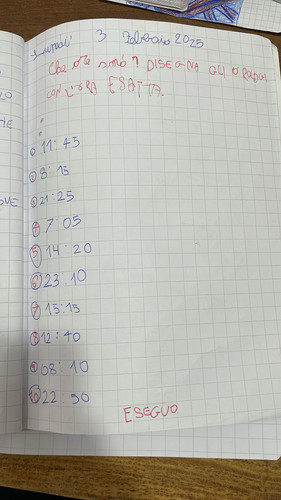 Lunedì 3 Febbraio 2025
Che ore sono? DISEGNA GLI OROLOGI
CON L'ORA ESATTA.
① 11:45
② 8:15
③ 21:25
④ 7:05
⑤ 14:20
⑥ 23:10
⑦ 15:15
⑧ 12:40
⑨ 08:10
⑩ 22:50
ESEGUO